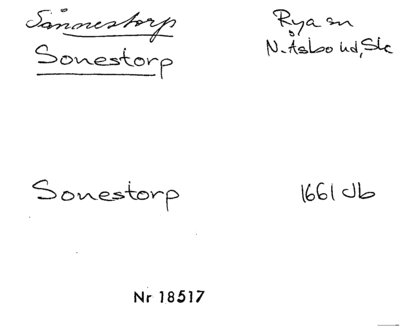 Sånnestorp
Rya sn
Sonestorp
N. Åsbo hd, Sk
Sonestorp
1661 Jb
Nr 18517